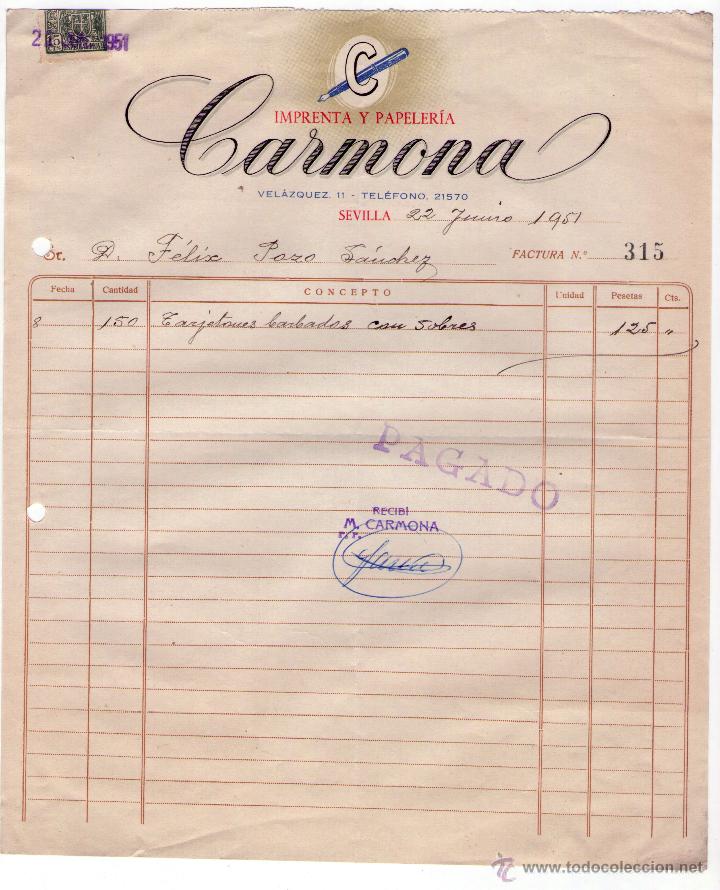 1951
C
IMPRENTA Y PAPELERÍA
Carmona
VELÁZQUEZ, 11 - TELÉFONO, 21570
SEVILLA 22 Junio 1951
Sr. D. Félix Pozo Sánchez FACTURA N.º 315
Fecha Cantidad CONCEPTO Unidad Pesetas Cts.
8 150 Tarjetones barbados con sobres 125 "
PAGADO
RECIBÍ
M. CARMONA
P. P.
www.todocoleccion.net